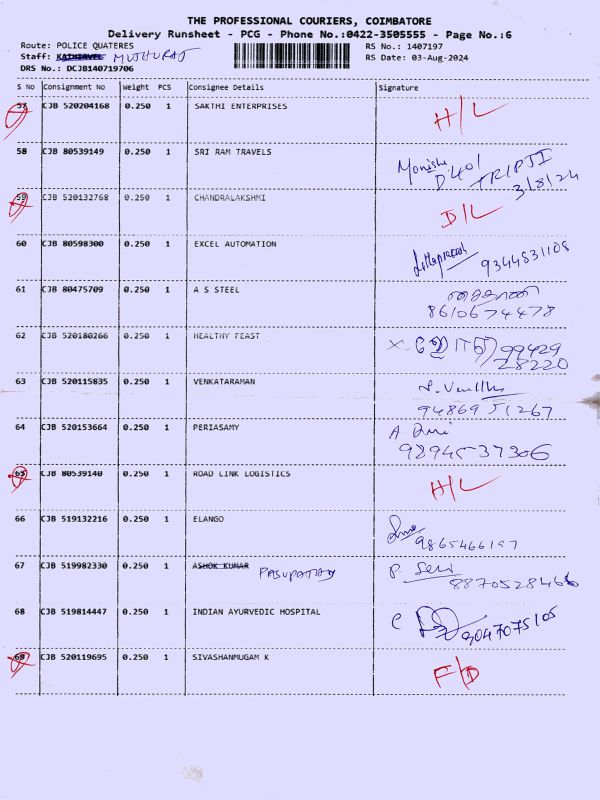 THE PROFESSIONAL COURIERS, COIMBATORE
Delivery Runsheet - PCG - Phone No.:0422-3505555 - Page No.:6
Route: POLICE QUATERES RS No.: 1407197
Staff: KATHIRVEL MUTHURAJ RS Date: 03-Aug-2024
DRS No.: DCJB140719706
S No Consignment No Weight PCS Consignee Details Signature
57 CJB 520204168 0.250 1 SAKTHI ENTERPRISES H/L
58 CJB 80539149 0.250 1 SRI RAM TRAVELS Monisha D.401 TRIPTI 3/8/24
59 CJB 520132768 0.250 1 CHANDRALAKSHMI D/L
60 CJB 80598300 0.250 1 EXCEL AUTOMATION 9344831108
61 CJB 80475709 0.250 1 A S STEEL
8610674478
62 CJB 520180266 0.250 1 HEALTHY FEAST 99429
28220
63 CJB 520115835 0.250 1 VENKATARAMAN
94869 51267
64 CJB 520153664 0.250 1 PERIASAMY A
9894537306
65 CJB 80539140 0.250 1 ROAD LINK LOGISTICS H/L
66 CJB 519132216 0.250 1 ELANGO
9865466197
67 CJB 519982330 0.250 1 ASHOK KUMAR PASUPATHY P. Selvi
8870528466
68 CJB 519814447 0.250 1 INDIAN AYURVEDIC HOSPITAL 9047075105
69 CJB 520119695 0.250 1 SIVASHANMUGAM K F/D